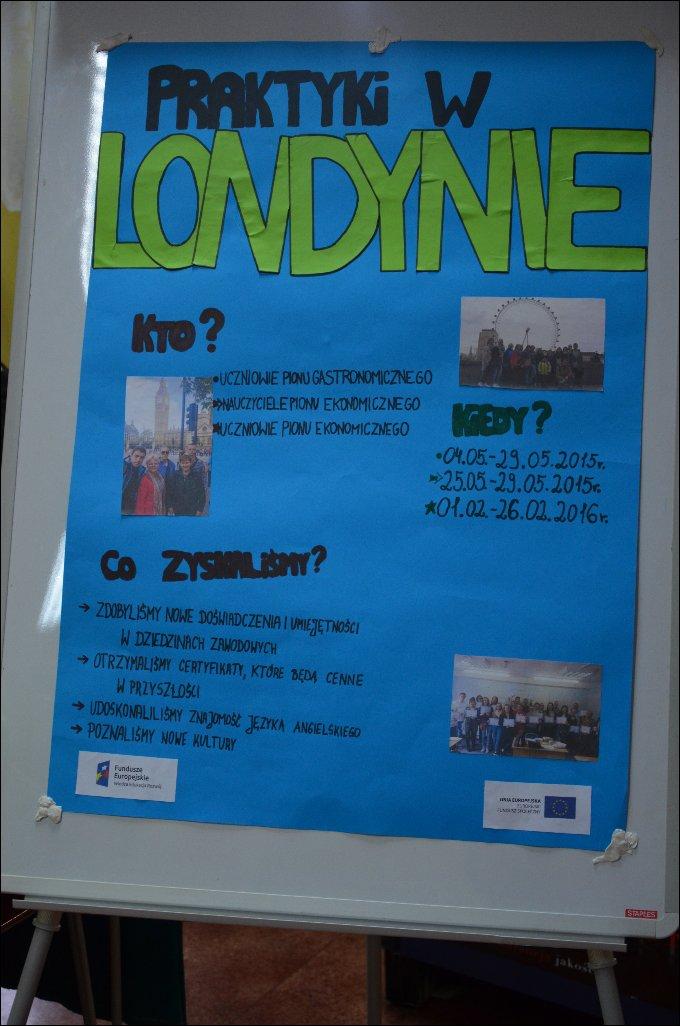 PRAKTYKi W
LONDYNIE
KTO?
•UCZNIOWIE PIONU GASTRONOMICZNEGO
NAUCZYCIELE PIONU EKONOMICZNEGO
★UCZNIOWIE PIONU EKONOMICZNEGO
KiEDY?
•04.05.-29.05.2015r.
25.05.-29.05.2015r.
★01.02.-26.02.2016r.
CO ZYSKALiŚMY?
→ ZDOBYLIŚMY NOWE DOŚWIADCZENIA I UMIEJĘTNOŚCI
W DZIEDZINACH ZAWODOWYCH
→ OTRZYMALIŚMY CERTYFIKATY, KTÓRE BĘDĄ CENNE
W PRZYSZŁOŚCI
→ UDOSKONALILIŚMY ZNAJOMOŚĆ JĘZYKA ANGIELSKIEGO
→ POZNALIŚMY NOWE KULTURY
Fundusze
Europejskie
Wiedza Edukacja Rozwój
UNIA EUROPEJSKA
EUROPEJSKI
FUNDUSZ SPOŁECZNY
STAPLES
jakość